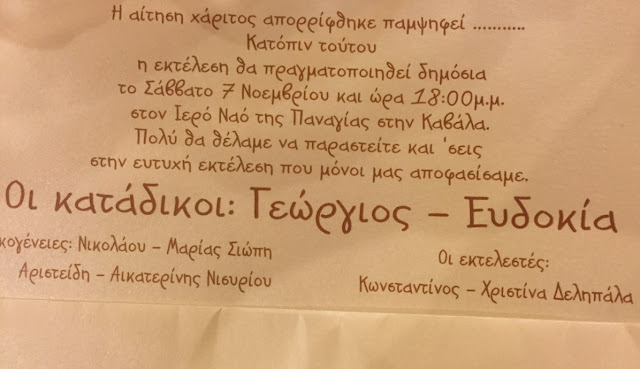 Η αίτηση χάριτος απορρίφθηκε παμψηφεί ...........
Κατόπιν τούτου
η εκτέλεση θα πραγματοποιηθεί δημόσια
το Σάββατο 7 Νοεμβρίου και ώρα 18:00μ.μ.
στον Ιερό Ναό της Παναγίας στην Καβάλα.
Πολύ θα θέλαμε να παραστείτε και 'σεις
στην ευτυχή εκτέλεση που μόνοι μας αποφασίσαμε.
Οι κατάδικοι: Γεώργιος – Ευδοκία
κογένειες: Νικολάου – Μαρίας Σιώπη
Αριστείδη – Αικατερίνης Νισυρίου
Οι εκτελεστές:
Κωνσταντίνος – Χριστίνα Δεληπάλα